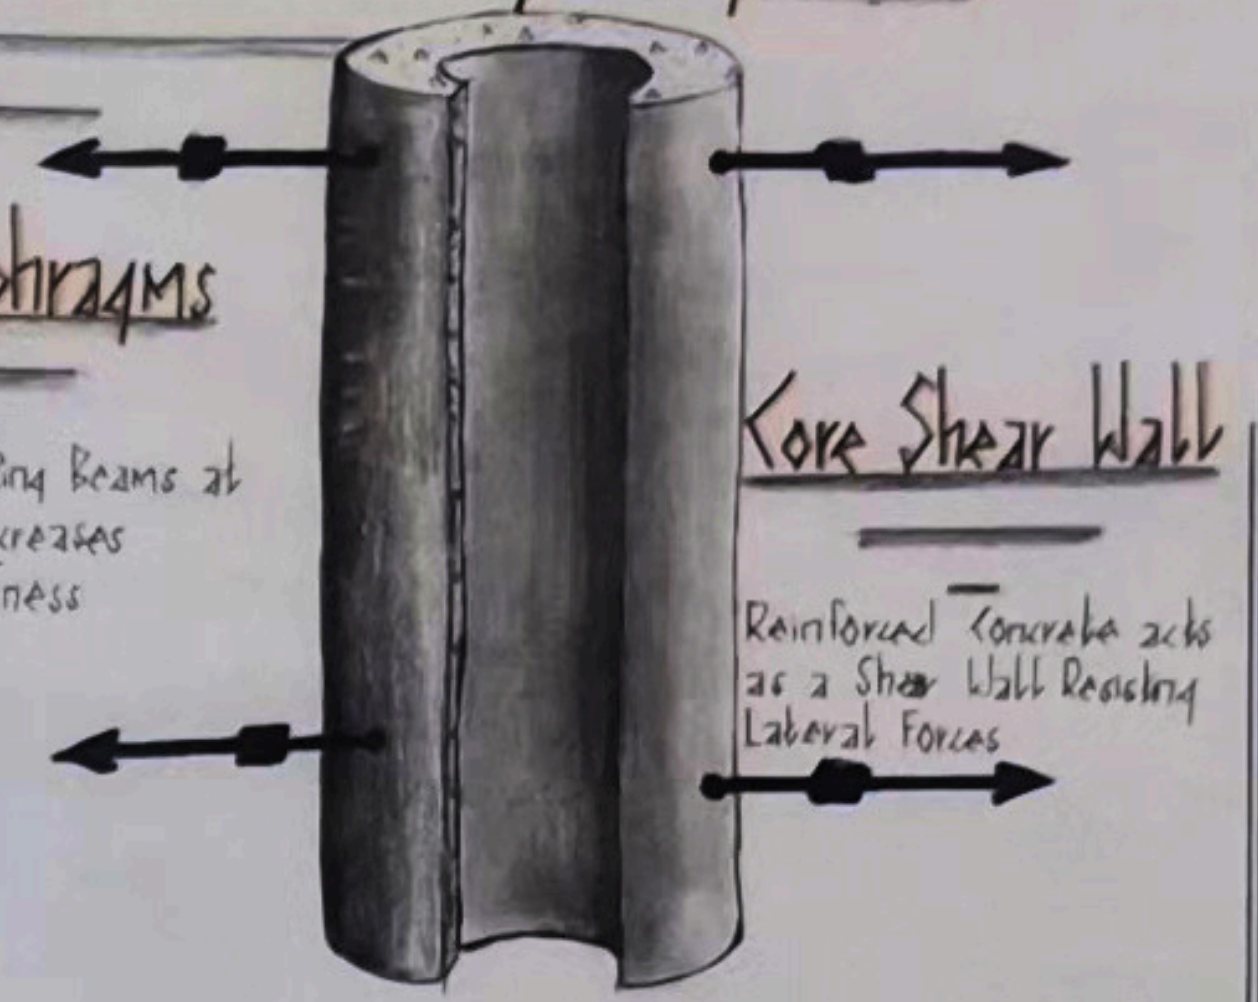 phragms
ing Beams at
creases
ness
Core Shear Wall
Reinforced Concrete acts
as a Shear Wall Resisting
Lateral Forces